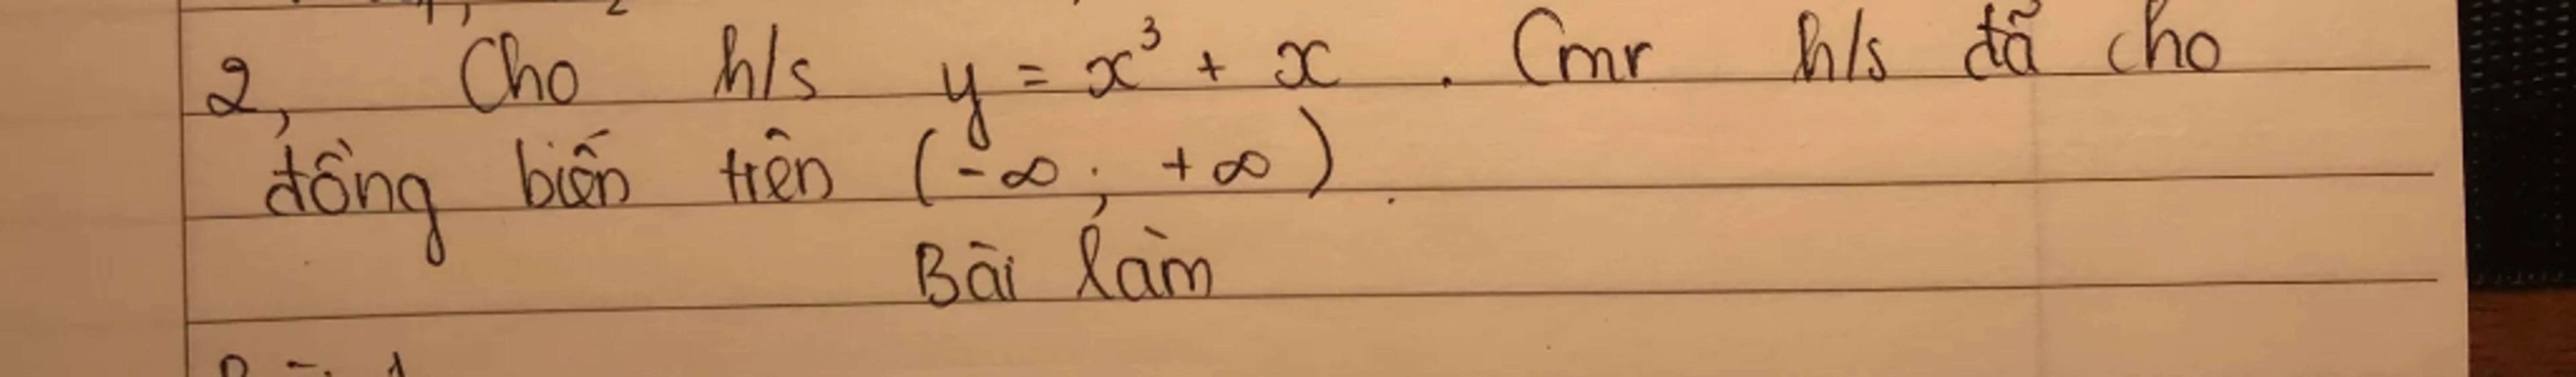 2, Cho h/s y = x³ + x. Cmr h/s đã cho
đồng biến trên (-∞; +∞).
Bài làm